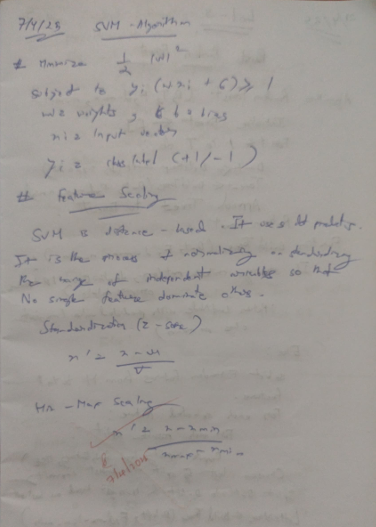 7/4/25 SVM - Algorithm
# Minimize 1/2 |w|²
Subject to yi (wxi + b) ≥ 1
w = weights, b = bias
xi = Input vectors
yi = class label (+1/-1)
# Feature Scaling
SVM is distance-based. It uses dot products.
It is the process of normalizing or standardizing
the range of independent variables so that
No single feature dominate others.
Standardization (z-score)
x' = x - u / σ
Min-Max Scaling
x' = x - xmin / xmax - xmin